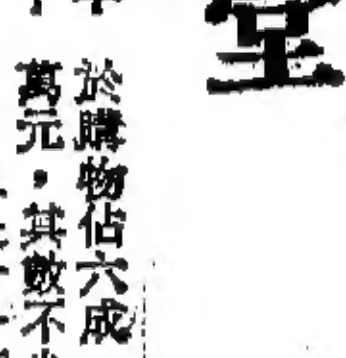 堂
於購物佔六成
萬元，其數不